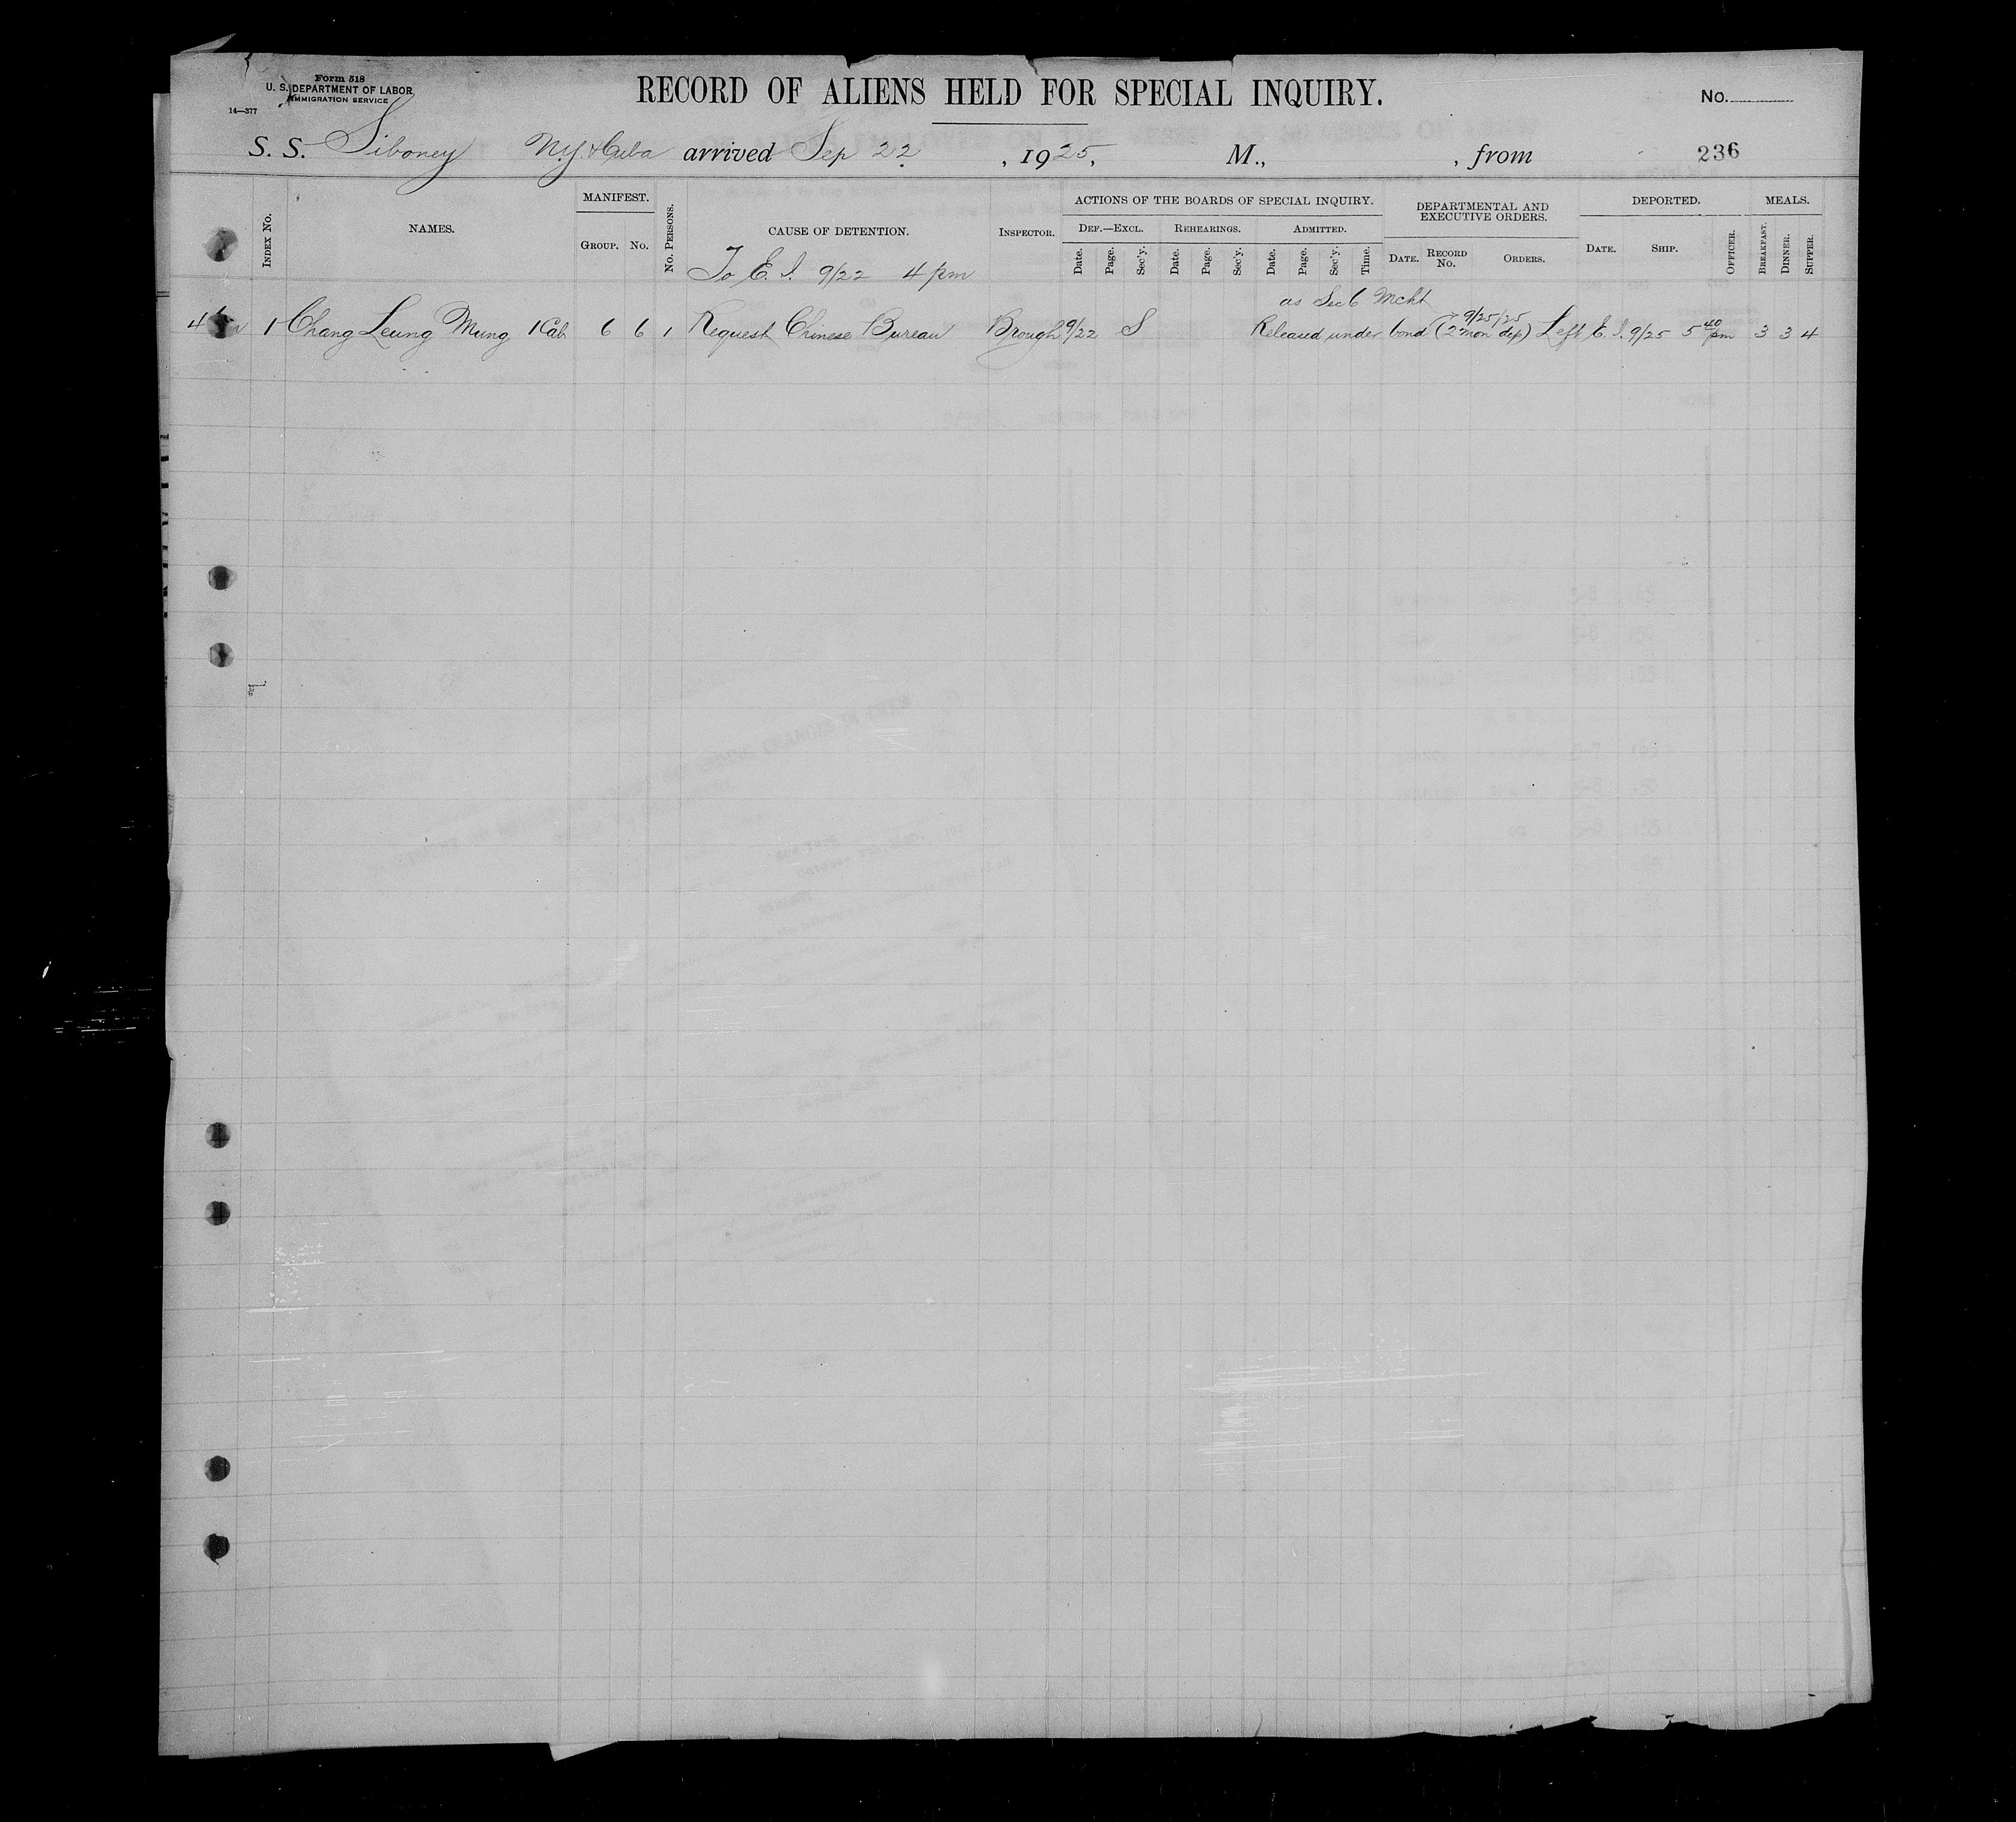 Form 518
U. S. DEPARTMENT OF LABOR
IMMIGRATION SERVICE
14—377
RECORD OF ALIENS HELD FOR SPECIAL INQUIRY.
No.
S. S. Siboney N.Y. & Cuba arrived Sep 22, 1925, M., , from
236
INDEX NO.
NAMES.
MANIFEST.
GROUP. NO.
NO. PERSONS.
CAUSE OF DETENTION.
To E. I. 9/22 4 pm
INSPECTOR.
ACTIONS OF THE BOARDS OF SPECIAL INQUIRY.
DEF.—EXCL. REHEARINGS. ADMITTED.
Date. Page. Sec'y. Date. Page. Sec'y. Date. Page. Sec'y. Time.
DEPARTMENTAL AND EXECUTIVE ORDERS.
DATE. RECORD NO. ORDERS.
DEPORTED.
DATE. SHIP. OFFICER.
MEALS.
BREAKFAST. DINNER. SUPPER.
as Sec 6 Mcht
9/25/25
1 Chang Leung Mung 1 Cab 6 6 1 Request Chinese Bureau Brough 9/22 S Released under bond (2 mon dep) Left E. I. 9/25 5 40 pm 3 3 4